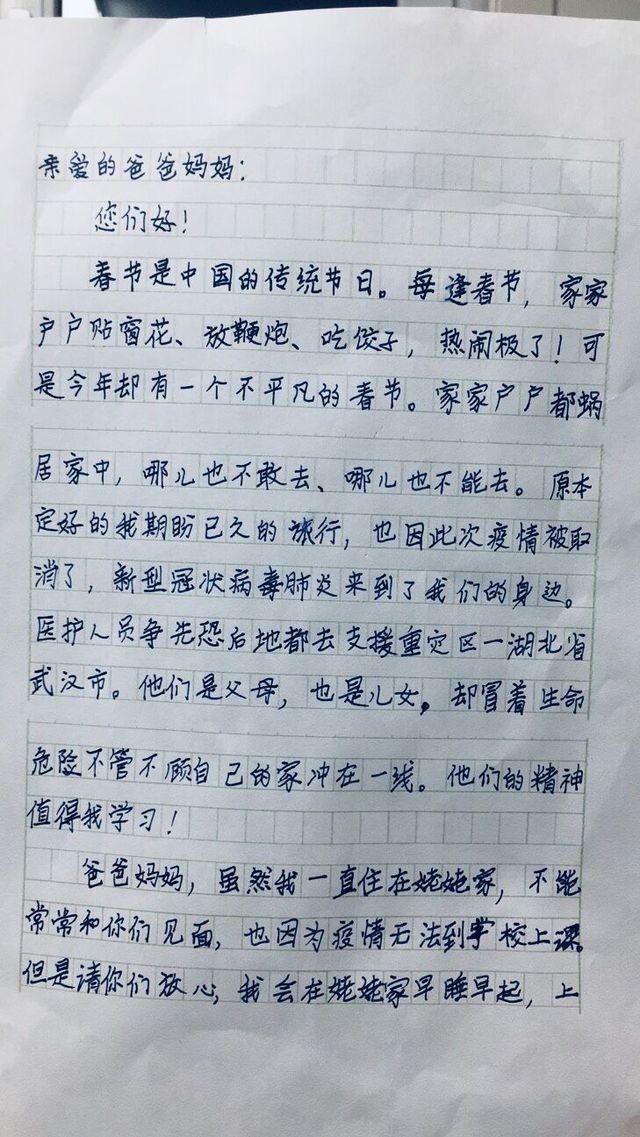 亲爱的爸爸妈妈：
您们好！
春节是中国的传统节日。每逢春节，家家
户户贴窗花、放鞭炮、吃饺子，热闹极了！可
是今年却有一个不平凡的春节。家家户户都蜗
居家中，哪儿也不敢去、哪儿也不能去。原本
定好的我期盼已久的旅行，也因此次疫情被取
消了，新型冠状病毒肺炎来到了我们的身边。
医护人员争先恐后地都去支援重灾区一湖北省
武汉市。他们是父母，也是儿女。却冒着生命
危险不管不顾自己的家冲在一线。他们的精神
值得我学习！
爸爸妈妈，虽然我一直住在姥姥家，不能
常常和你们见面，也因为疫情无法到学校上课。
但是请你们放心，我会在姥姥家早睡早起，上